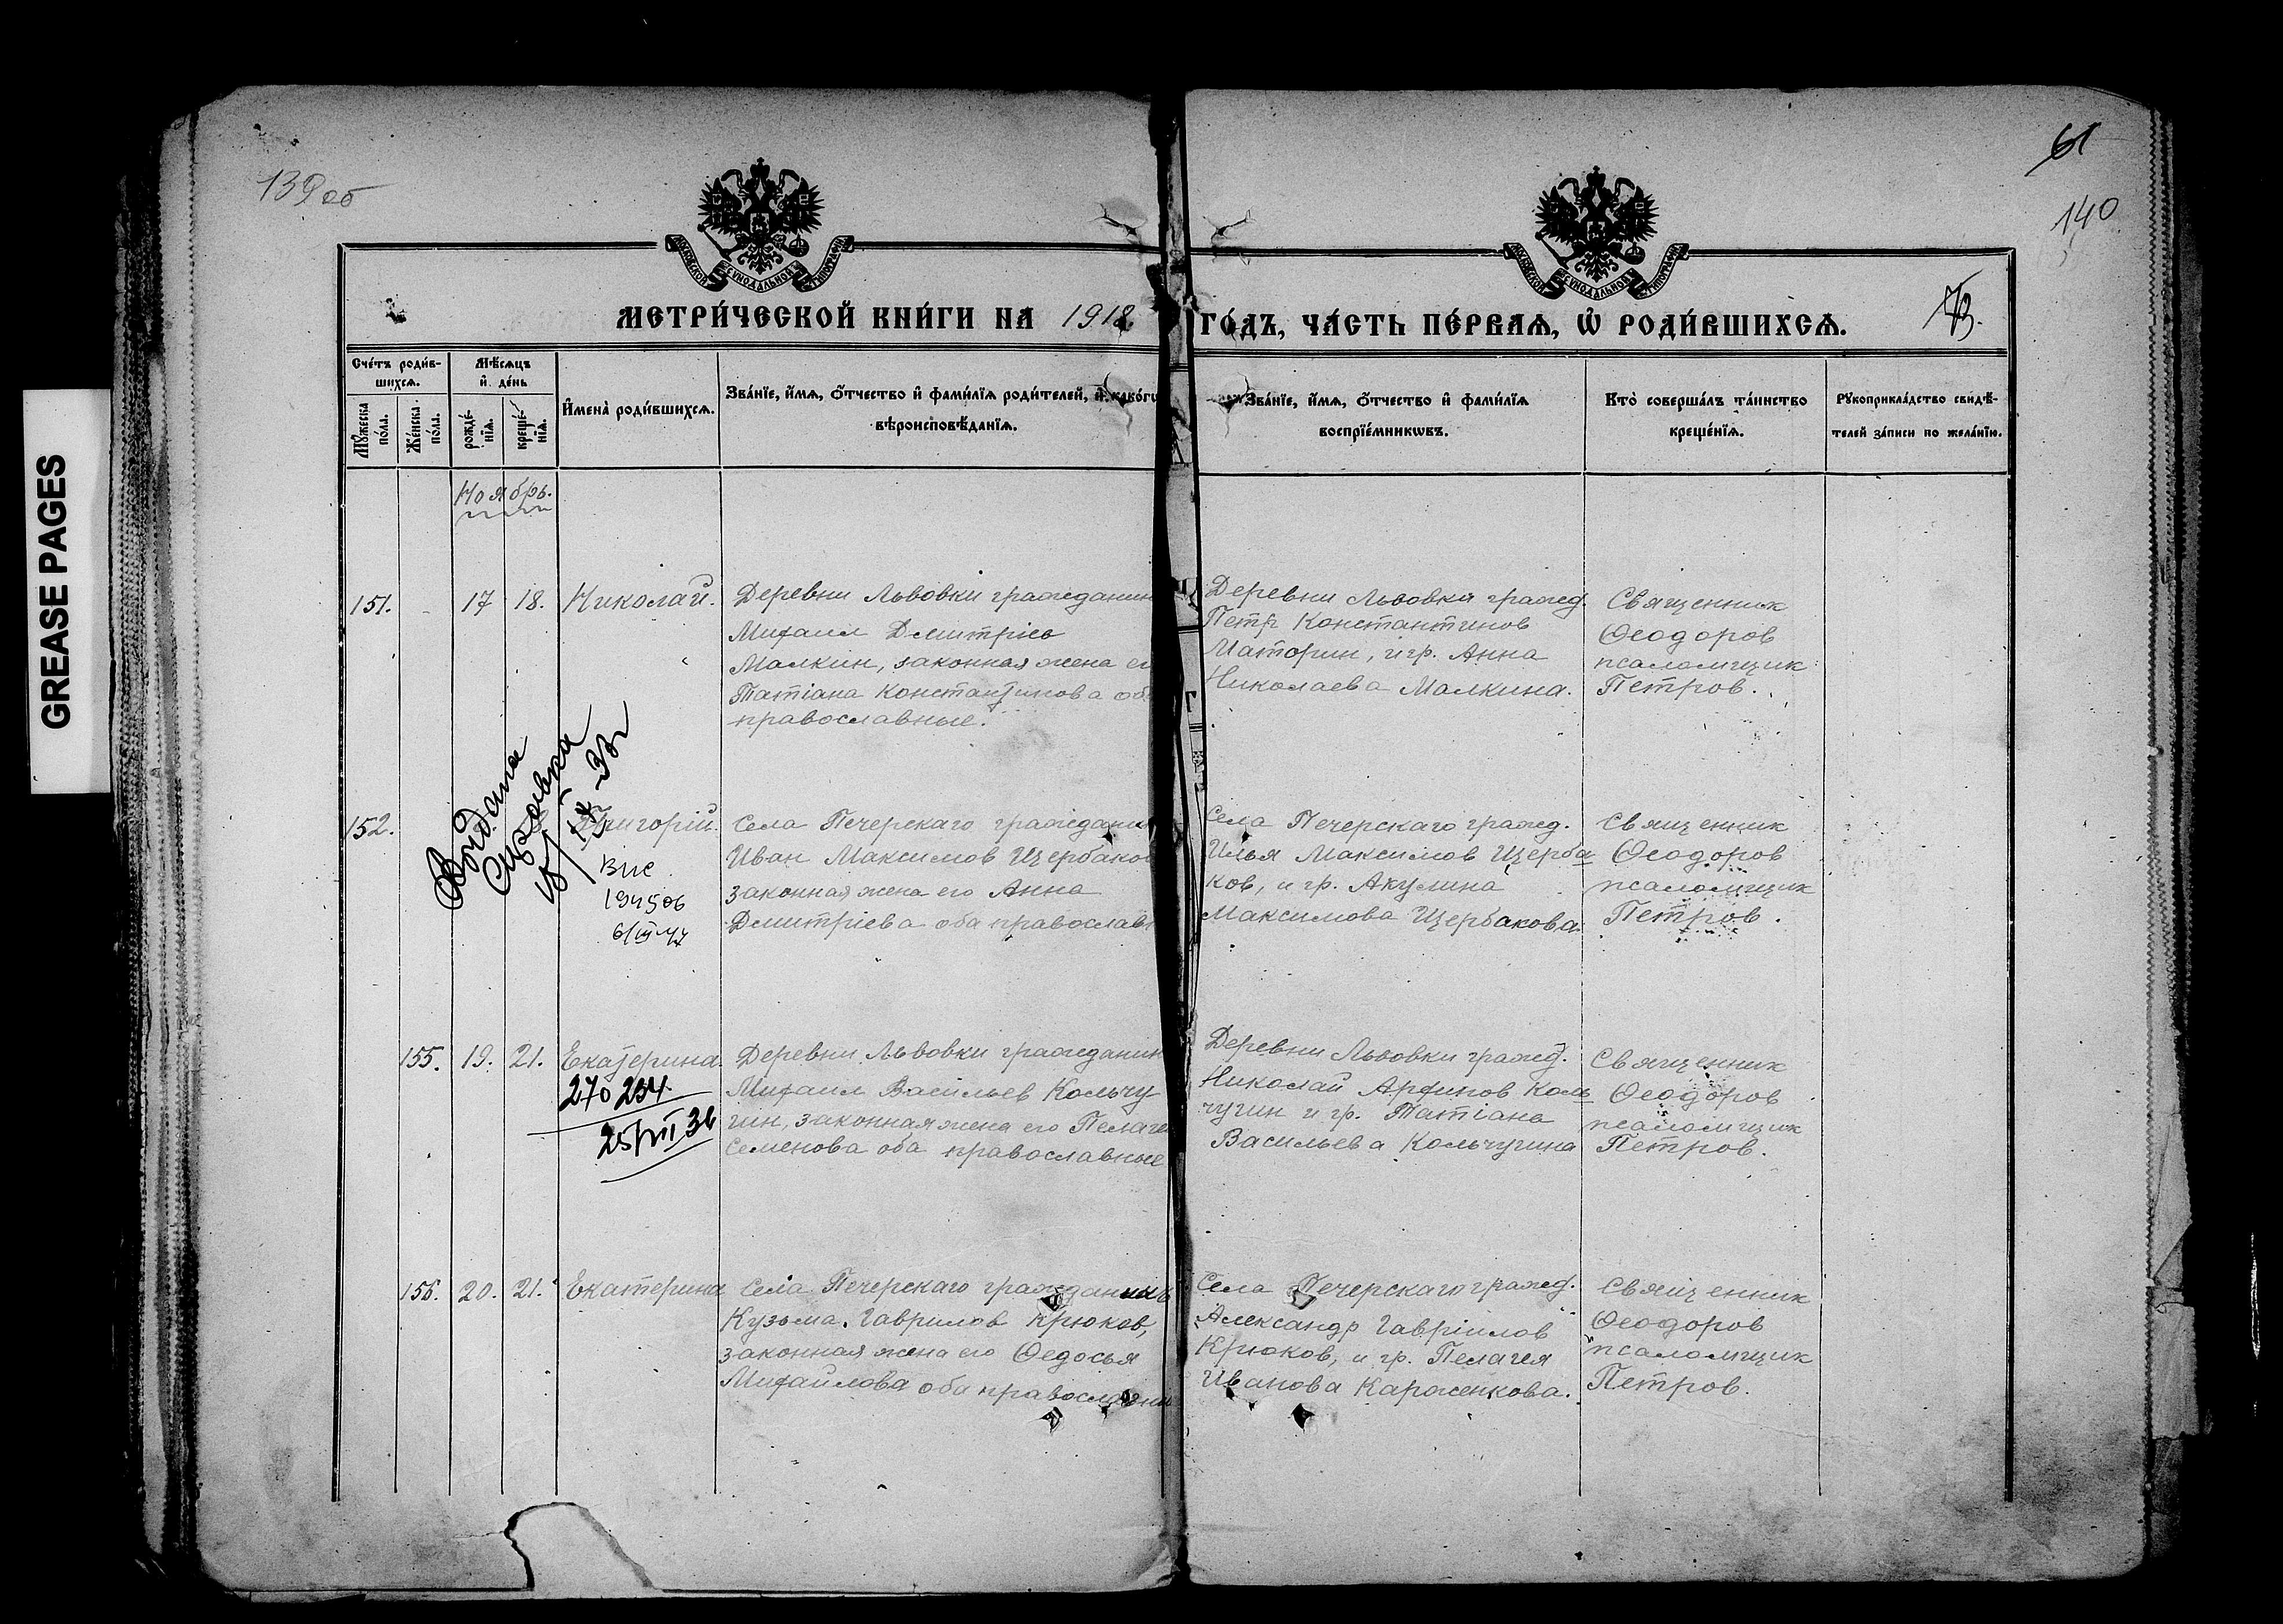 GREASE PAGES
139об
61
140
МОСКОВСКОЙ СѴНОДАЛЬНОЙ ТИПОГРАФІИ
МОСКОВСКОЙ СѴНОДАЛЬНОЙ ТИПОГРАФІИ
МЕТРИ́ЧЕСКОЙ КНИ́ГИ НА 1918
ГО́ДЪ, ЧА́СТЬ ПЕ́РВАѦ, Ѽ РОДИ́ВШИХСѦ.
73.
Сче́тъ роди́в-
шихсѧ.
Мѣ́сѧцъ
и҆ де́нь
Мꙋ́жеска
по́ла.
Же́нска
по́ла.
рожде́-
нїѧ.
креще́-
нїѧ.
И҆мена̀ роди́вшихсѧ.
Зва́нїе, и҆́мѧ, ѻ҆́тчество и҆ фами́лїѧ роди́телей, и҆ како́гѡ
вѣроисповѣ́данїѧ.
Зва́нїе, и҆́мѧ, ѻ҆́тчество и҆ фами́лїѧ
воспрїе́мникѡвъ.
Кто̀ соверша́лъ та́инство
креще́нїѧ.
Рꙋкоприкла́дство свидѣ́-
телей за́писи по жела́нїю.
Ноябрь.
151.
17
18.
Николай.
Деревни Львовки гражданин
Михаил Дмитріев
Малкин, законная жена ег
Татіана Константинова об
православные.
Деревни Львовки гражд.
Петр Константинов
Маторин, и гр. Анна
Николаева Малкина.
Священник
Ѳеодоров
псаломщик
Петров.
Выдана
справка
152.
Григорій.
194506
Села Печерскаго граждани
Иван Максимов Щербаков
законная жена его Анна
Дмитріева оба православн
Села Печерскаго гражд.
Илья Максимов Щерба
ков, и гр. Акулина
Максимова Щербакова.
Священник
Ѳеодоров
псаломщик
Петров.
155.
19.
21.
Екатерина.
270234
25/VII 36
Деревни Львовки гражданин
Михаил Васильев Кольчу
гин, законная жена его Пелаге
Семенова оба православные
Деревни Львовки гражд.
Николай Архипов Коль
чугин и гр. Татіана
Васильева Кольчугина
Священник
Ѳеодоров
псаломщик
Петров.
156.
20.
21.
Екатерина
Села Печерскаго гражданинъ
Кузьма Гаврилов Крюков,
законная жена его Ѳедосья
Михайлова оба православны
Села Печерскаго гражд.
Александр Гавріилов
Крюков, и гр. Пелагея
Иванова Карженкова.
Священник
Ѳеодоров
псаломщик
Петров.